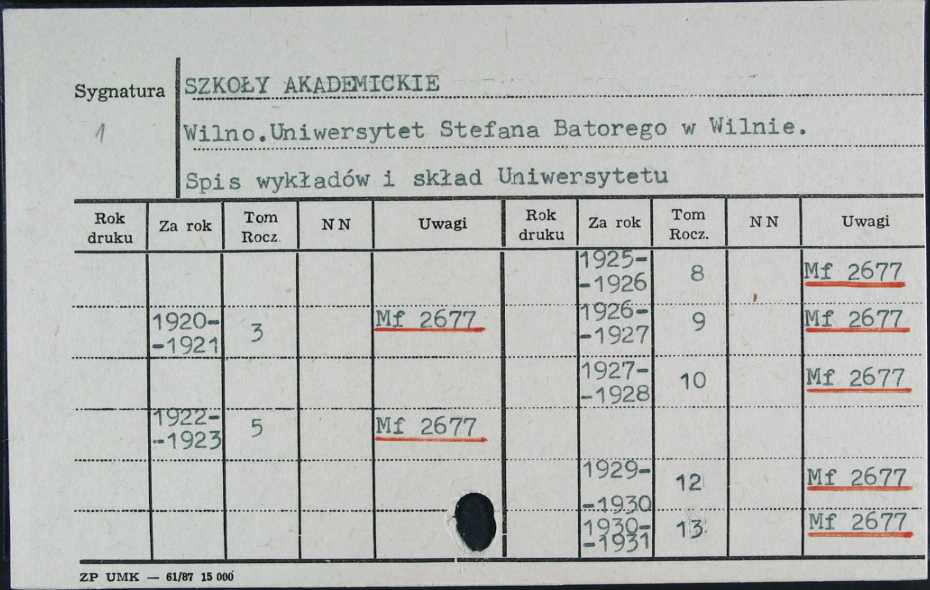 SZKOŁY AKADEMICKIE
Sygnatura
1
Wilno.Uniwersytet Stefana Batorego w Wilnie.
Spis wykładów i skład Uniwersytetu
Rok druku Za rok Tom Rocz. N N Uwagi Rok druku Za rok Tom Rocz. N N Uwagi
1925-
-1926 8 Mf 2677
1920-
-1921 3 Mf 2677
1926-
-1927 9 Mf 2677
1927-
-1928 10 Mf 2677
1922-
-1923 5 Mf 2677
1929-
-1930 12 Mf 2677
1930-
-1931 13 Mf 2677
ZP UMK — 61/87 15 000